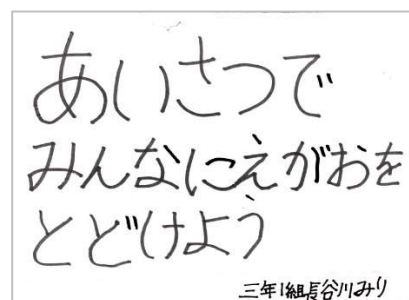 あいさつで
みんなにえがおを
とどけよう
三年1組長谷川みり